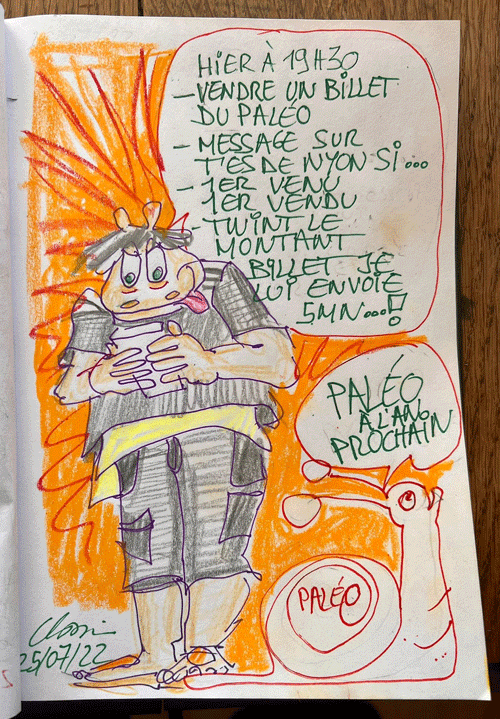 HIER À 19H30
- VENDRE UN BILLET
DU PALÉO
- MESSAGE SUR
T'ES DE NYON SI...
- 1ER VENU
1ER VENDU
- TWINT LE
MONTANT
BILLET JE
LUI ENVOIE
5MN...!
PALÉO
À L'AN
PROCHAIN
PALÉO
25/07/22